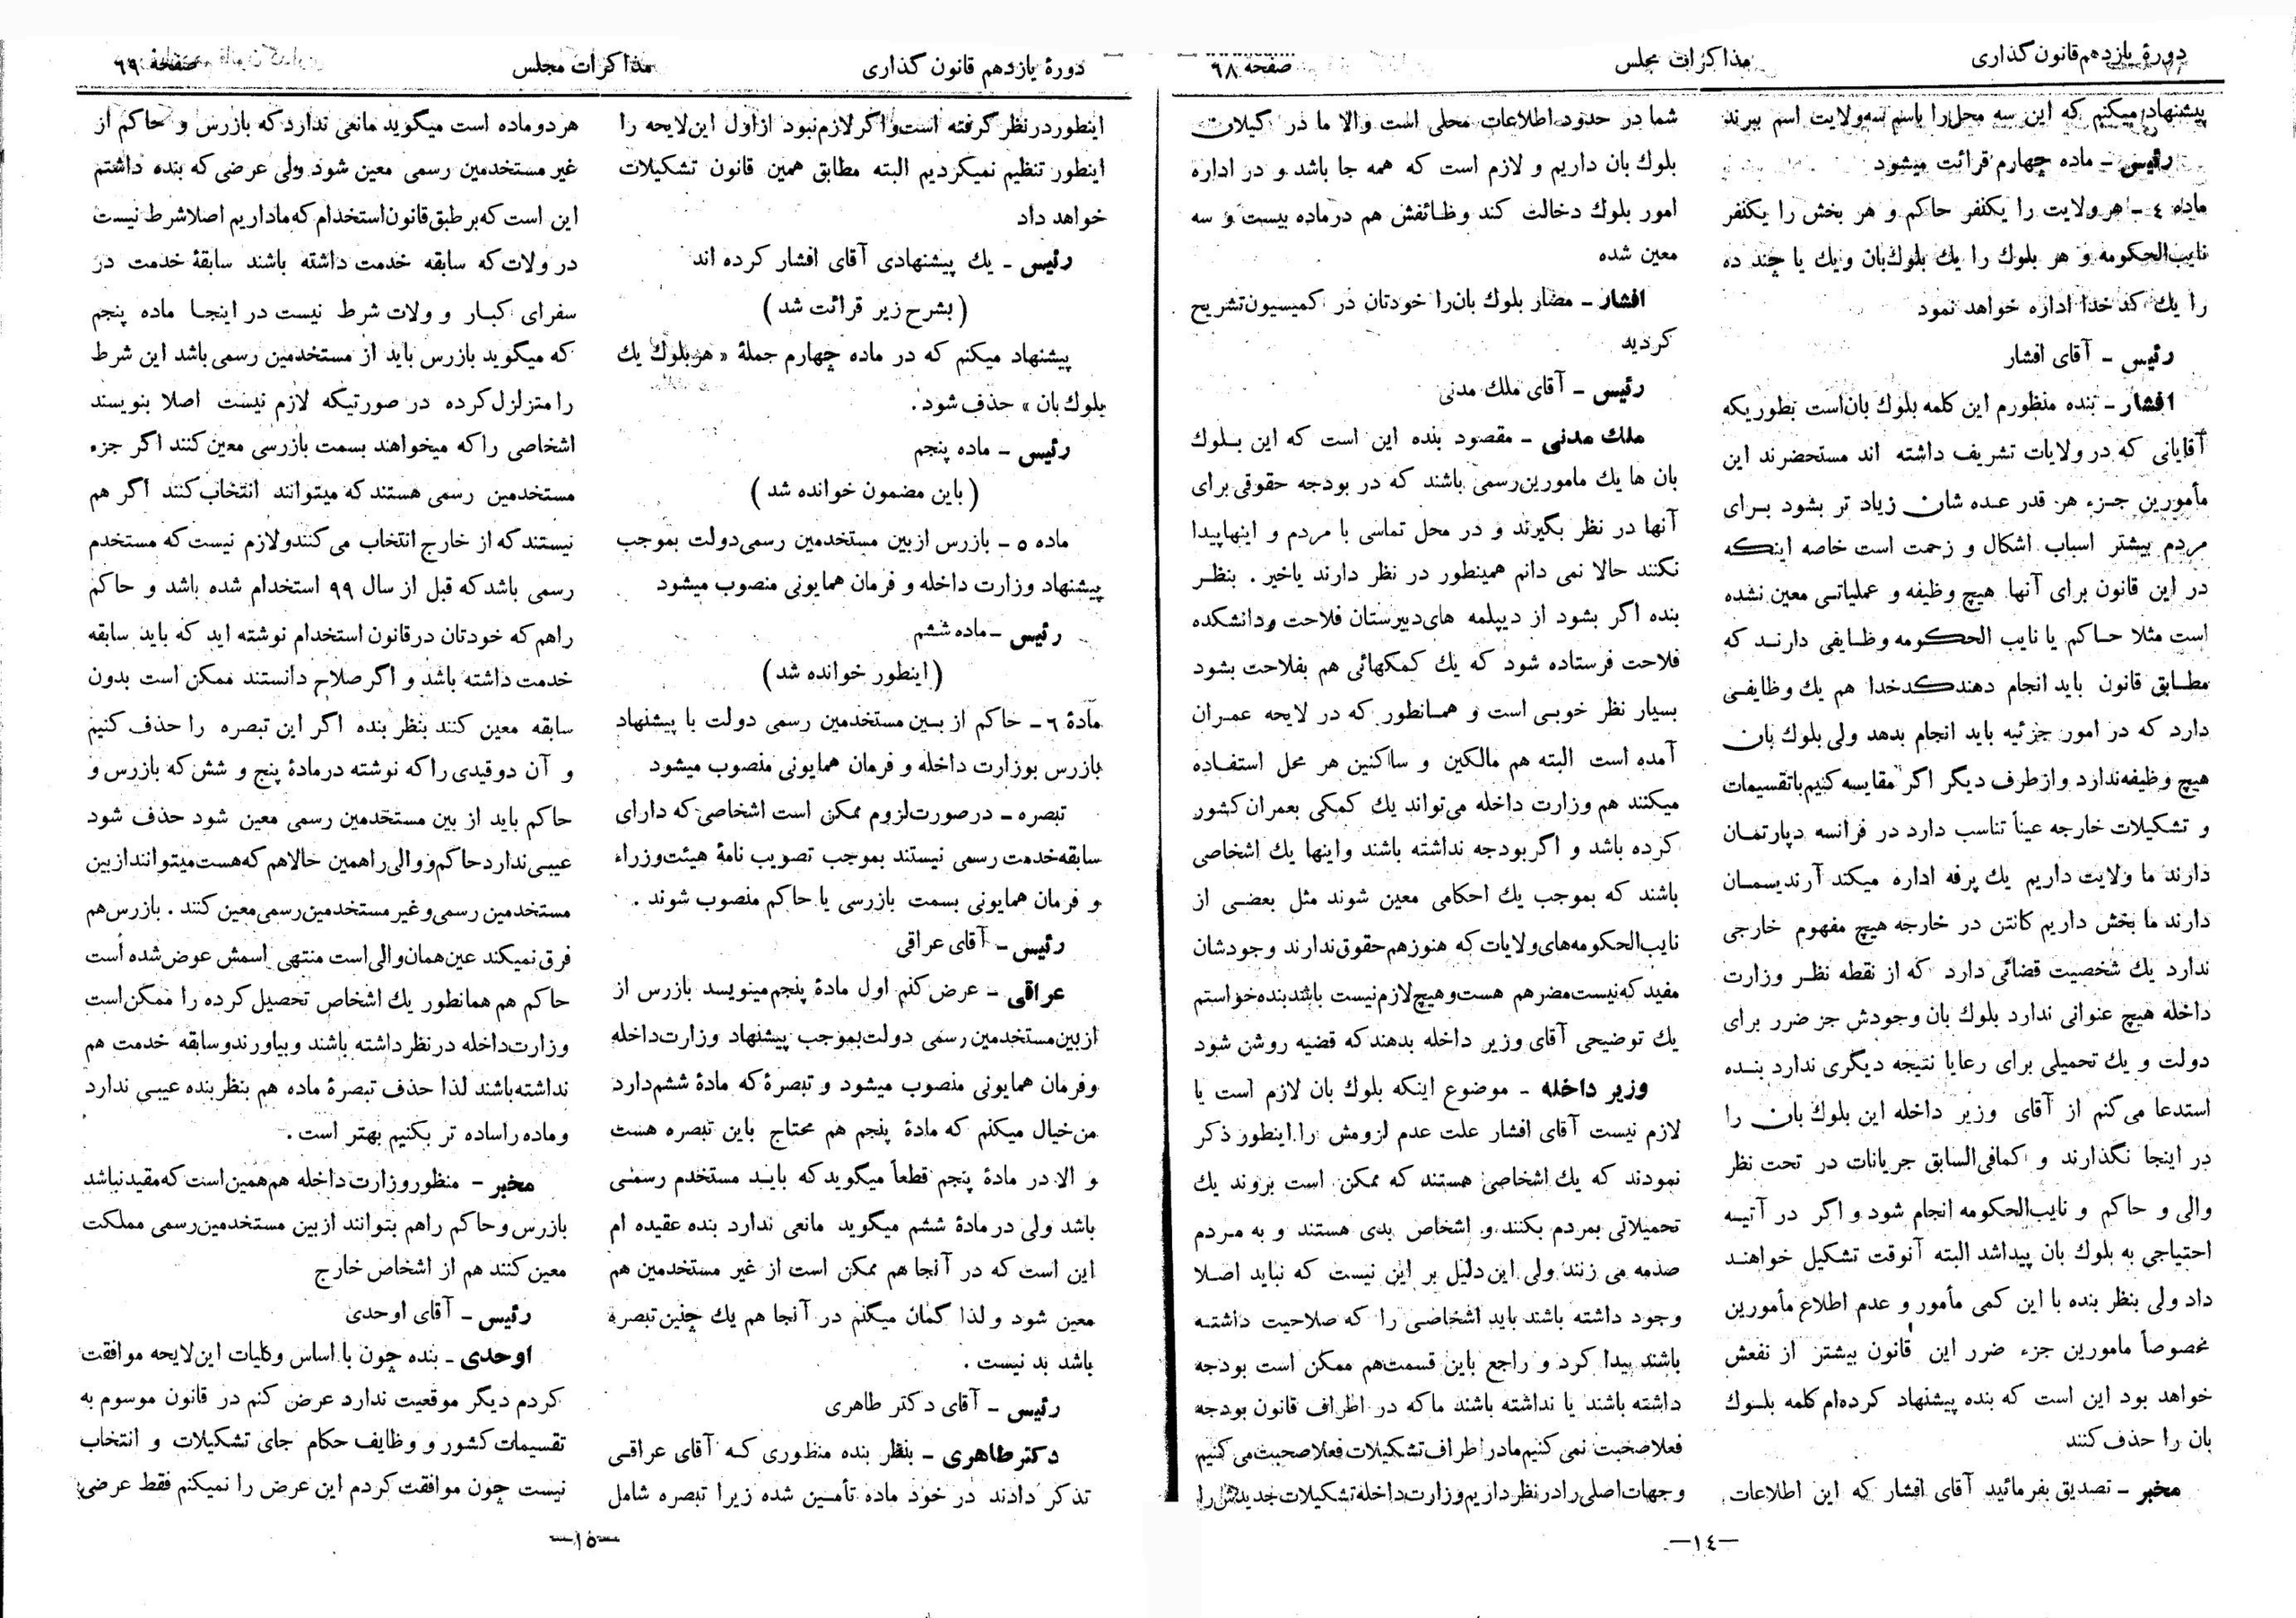 دورهٔ یازدهم قانون گذاری
مذاکرات مجلس
صفحه ٦٨
پیشنهاد میکنم که این سه محل را باسم سه ولایت اسم ببرند
رئیس ـ ماده چهارم قرائت میشود
ماده ٤ ـ هر ولایت را یکنفر حاکم و هر بخش را یکنفر
نایب‌الحکومه و هر بلوك را یك بلوك بان و یك یا چند ده
را یك کدخدا اداره خواهد نمود
رئیس ـ آقای افشار
افشار ـ بنده منظورم این کلمه بلوك بان است بطوریکه
آقایانی که در ولایات تشریف داشته اند مستحضرند این
مأمورین جزء هر قدر عده شان زیاد تر بشود برای
مردم بیشتر اسباب اشکال و زحمت است خاصه اینکه
در این قانون برای آنها هیچ وظیفه و عملیاتی معین نشده
است مثلا حاکم یا نایب الحکومه وظایفی دارند که
مطابق قانون باید انجام دهند کدخدا هم یك وظایفی
دارد که در امور جزئیه باید انجام بدهد ولی بلوك بان
هیچ وظیفه ندارد و از طرف دیگر اگر مقایسه کنیم با تقسیمات
و تشکیلات خارجه عیناً تناسب دارد در فرانسه دپارتمان
دارند ما ولایت داریم یك پرفه اداره میکند آرندیسمان
دارند ما بخش داریم کانتن در خارجه هیچ مفهوم خارجی
ندارد یك شخصیت قضائی دارد که از نقطه نظر وزارت
داخله هیچ عنوانی ندارد بلوك بان وجودش جز ضرر برای
دولت و یك تحمیلی برای رعایا نتیجه دیگری ندارد بنده
استدعا می‌کنم از آقای وزیر داخله این بلوك بان را
در اینجا نگذارند و کمافی‌السابق جریانات در تحت نظر
والی و حاکم و نایب‌الحکومه انجام شود و اگر در آتیه
احتیاجی به بلوك بان پیدا شد البته آنوقت تشکیل خواهند
داد ولی بنظر بنده با این کمی مأمور و عدم اطلاع مأمورین
مخصوصاً مامورین جزء ضرر این قانون بیشتر از نفعش
خواهد بود این است که بنده پیشنهاد کرده‌ام کلمه بلوك
بان را حذف کنند
مخبر ـ تصدیق بفرمائید آقای افشار که این اطلاعات
شما در حدود اطلاعات محلی است والا ما در گیلان
بلوك بان داریم و لازم است که همه جا باشد و در اداره
امور بلوك دخالت کند وظائفش هم در ماده بیست و سه
معین شده
افشار ـ مضار بلوك بان را خودتان در کمیسیون تشریح
کردید
رئیس ـ آقای ملك مدنی
ملك مدنی ـ مقصود بنده این است که این بلوك
بان ها یك مامورین رسمی باشند که در بودجه حقوقی برای
آنها در نظر بگیرند و در محل تماسی با مردم و اینها پیدا
نکنند حالا نمی دانم همینطور در نظر دارند یا خیر . بنظر
بنده اگر بشود از دیپلمه های دبیرستان فلاحت و دانشکده
فلاحت فرستاده شود که یك کمکهائی هم بفلاحت بشود
بسیار نظر خوبی است و همانطور که در لایحه عمران
آمده است البته هم مالکین و ساکنین هر محل استفاده
میکنند هم وزارت داخله می‌تواند یك کمکی بعمران کشور
کرده باشد و اگر بودجه نداشته باشند و اینها یك اشخاصی
باشند که بموجب یك احکامی معین شوند مثل بعضی از
نایب‌الحکومه‌های ولایات که هنوز هم حقوق ندارند وجودشان
مفید که نیست مضر هم هست و هیچ لازم نیست باشند بنده خواستم
یك توضیحی آقای وزیر داخله بدهند که قضیه روشن شود
وزیر داخله ـ موضوع اینکه بلوك بان لازم است یا
لازم نیست آقای افشار علت عدم لزومش را اینطور ذکر
نمودند که یك اشخاصی هستند که ممکن است بروند یك
تحمیلاتی بمردم بکنند و اشخاص بدی هستند و به مردم
صدمه می زنند ولی این دلیل بر این نیست که نباید اصلا
وجود داشته باشند باید اشخاصی را که صلاحیت داشته
باشند پیدا کرد و راجع باین قسمت هم ممکن است بودجه
داشته باشند یا نداشته باشند ما که در اطراف قانون بودجه
فعلا صحبت نمی کنیم ما در اطراف تشکیلات فعلا صحبت می کنیم
وجهات اصلی را در نظر داریم وزارت داخله تشکیلات جدیدش را
ـ١٤ـ
دورهٔ یازدهم قانون گذاری
مذاکرات مجلس
صفحه ٦٩
اینطور در نظر گرفته است و اگر لازم نبود از اول این لایحه را
اینطور تنظیم نمیکردیم البته مطابق همین قانون تشکیلات
خواهد داد
رئیس ـ یك پیشنهادی آقای افشار کرده اند
(بشرح زیر قرائت شد)
پیشنهاد میکنم که در ماده چهارم جملهٔ « هر بلوك یك
بلوك بان » حذف شود.
رئیس ـ ماده پنجم
(باین مضمون خوانده شد)
ماده ٥ ـ بازرس از بین مستخدمین رسمی دولت بموجب
پیشنهاد وزارت داخله و فرمان همایونی منصوب میشود
رئیس ـ ماده ششم
(اینطور خوانده شد)
مادهٔ ٦ ـ حاکم از بین مستخدمین رسمی دولت با پیشنهاد
بازرس بوزارت داخله و فرمان همایونی منصوب میشود
تبصره ـ در صورت لزوم ممکن است اشخاصی که دارای
سابقه خدمت رسمی نیستند بموجب تصویب نامهٔ هیئت وزراء
و فرمان همایونی بسمت بازرسی یا حاکم منصوب شوند .
رئیس ـ آقای عراقی
عراقی ـ عرض کنم اول مادهٔ پنجم مینویسد بازرس از
از بین مستخدمین رسمی دولت بموجب پیشنهاد وزارت داخله
و فرمان همایونی منصوب میشود و تبصرهٔ که مادهٔ ششم دارد
من خیال میکنم که مادهٔ پنجم هم محتاج باین تبصره هست
و الا در مادهٔ پنجم قطعاً میگوید که باید مستخدم رسمی
باشد ولی در مادهٔ ششم میگوید مانعی ندارد بنده عقیده ام
این است که در آنجا هم ممکن است از غیر مستخدمین هم
معین شود و لذا گمان میکنم در آنجا هم یك چنین تبصره
باشد بد نیست .
رئیس ـ آقای دکتر طاهری
دکتر طاهری ـ بنظر بنده منظوری که آقای عراقی
تذکر دادند در خود ماده تأمین شده زیرا تبصره شامل
هر دو ماده است میگوید مانعی ندارد که بازرس و حاکم از
غیر مستخدمین رسمی معین شود ولی عرضی که بنده داشتم
این است که بر طبق قانون استخدام که ما داریم اصلا شرط نیست
در ولات که سابقه خدمت داشته باشند سابقهٔ خدمت در
سفرای کبار و ولات شرط نیست در اینجا ماده پنجم
که میگوید بازرس باید از مستخدمین رسمی باشد این شرط
را متزلزل کرده در صورتیکه لازم نیست اصلا بنویسند
اشخاصی را که میخواهند بسمت بازرسی معین کنند اگر جزء
مستخدمین رسمی هستند که میتوانند انتخاب کنند اگر هم
نیستند که از خارج انتخاب می کنند و لازم نیست که مستخدم
رسمی باشد که قبل از سال ٩٩ استخدام شده باشد و حاکم
را هم که خودتان در قانون استخدام نوشته اید که باید سابقه
خدمت داشته باشد و اگر صلاح دانستند ممکن است بدون
سابقه معین کنند بنظر بنده اگر این تبصره را حذف کنیم
و آن دو قیدی را که نوشته در مادهٔ پنج و شش که بازرس و
حاکم باید از بین مستخدمین رسمی معین شود حذف شود
عیبی ندارد حاکم و والی را همین حالا هم که هست میتوانند از بین
مستخدمین رسمی و غیر مستخدمین رسمی معین کنند . بازرس هم
فرق نمیکند عین همان والی است منتهی اسمش عوض شده است
حاکم هم همانطور یك اشخاص تحصیل کرده را ممکن است
وزارت داخله در نظر داشته باشند و بیاورند و سابقه خدمت هم
نداشته باشند لذا حذف تبصرهٔ ماده هم بنظر بنده عیبی ندارد
و ماده را ساده تر بکنیم بهتر است .
مخبر ـ منظور وزارت داخله هم همین است که مقید نباشد
بازرس و حاکم را هم بتوانند از بین مستخدمین رسمی مملکت
معین کنند هم از اشخاص خارج
رئیس ـ آقای اوحدی
اوحدی ـ بنده چون با اساس و کلیات این لایحه موافقت
کردم دیگر موقعیت ندارد عرض کنم در قانون موسوم به
تقسیمات کشور و وظایف حکام جای تشکیلات و انتخاب
نیست چون موافقت کردم این عرض را نمیکنم فقط عرضی
ـ١٥ـ